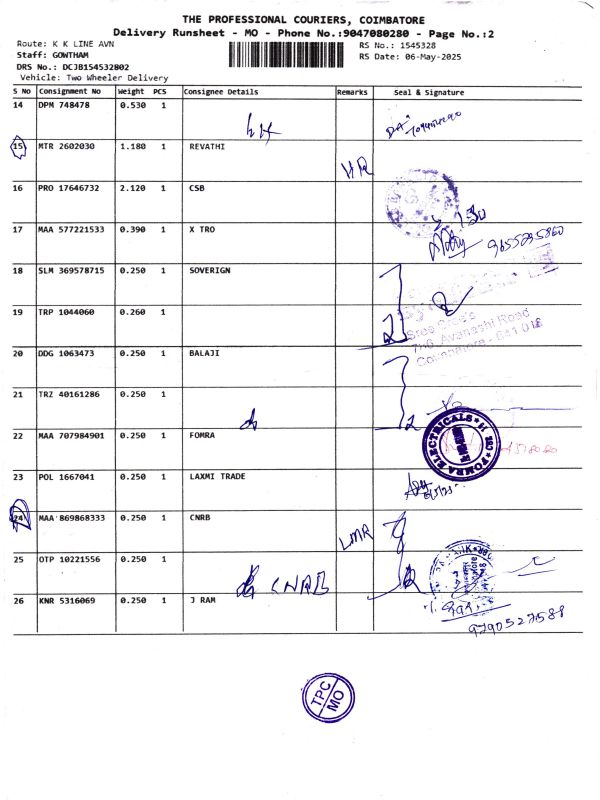 THE PROFESSIONAL COURIERS, COIMBATORE
Delivery Runsheet - MO - Phone No.:9047080280 - Page No.:2
Route: K K LINE AVN
RS No.: 1545328
Staff: GOWTHAM
RS Date: 06-May-2025
DRS No.: DCJB154532802
Vehicle: Two Wheeler Delivery
S No Consignment No Weight PCS Consignee Details Remarks Seal & Signature
14 DPM 748478 0.530 1
15 MTR 2602030 1.180 1 REVATHI
16 PRO 17646732 2.120 1 CSB
17 MAA 577221533 0.390 1 X TRO
9655795860
18 SLM 369578715 0.250 1 SOVERIGN
19 TRP 1044060 0.260 1
Avanashi Road
Coimbatore - 641 018
20 DDG 1063473 0.250 1 BALAJI
21 TRZ 40161286 0.250 1
2
22 MAA 707984901 0.250 1 FOMRA
FOMRA ELECTRICALS
23 POL 1667041 0.250 1 LAXMI TRADE
24 MAA 869868333 0.250 1 CNRB
LMR
25 OTP 10221556 0.250 1
CNRB
26 KNR 5316069 0.250 1 J RAM
9790527588
TPC
MO